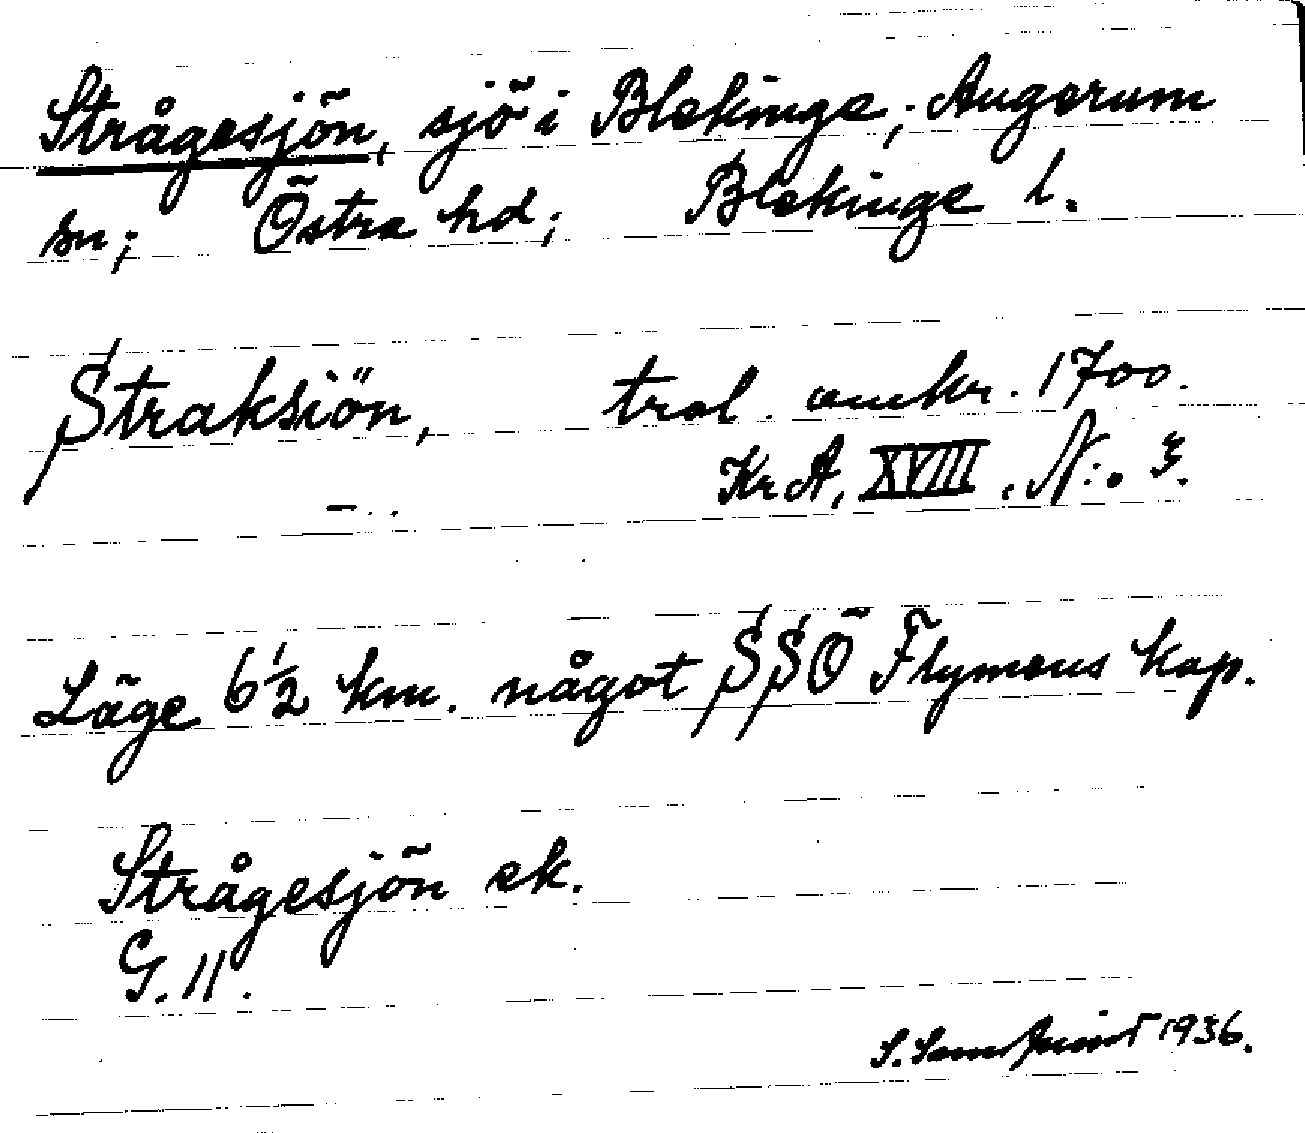 Strågesjön, sjö i Blekinge; Augerum
sn; Östra hd; Blekinge l.
Straksiön, trol. omkr. 1700.
KrA, XVIII. N:o 3.
Läge 6 1/2 km. något SSÖ Flymens kap.
Strågesjön ek.
G. 11.
S. 1936.